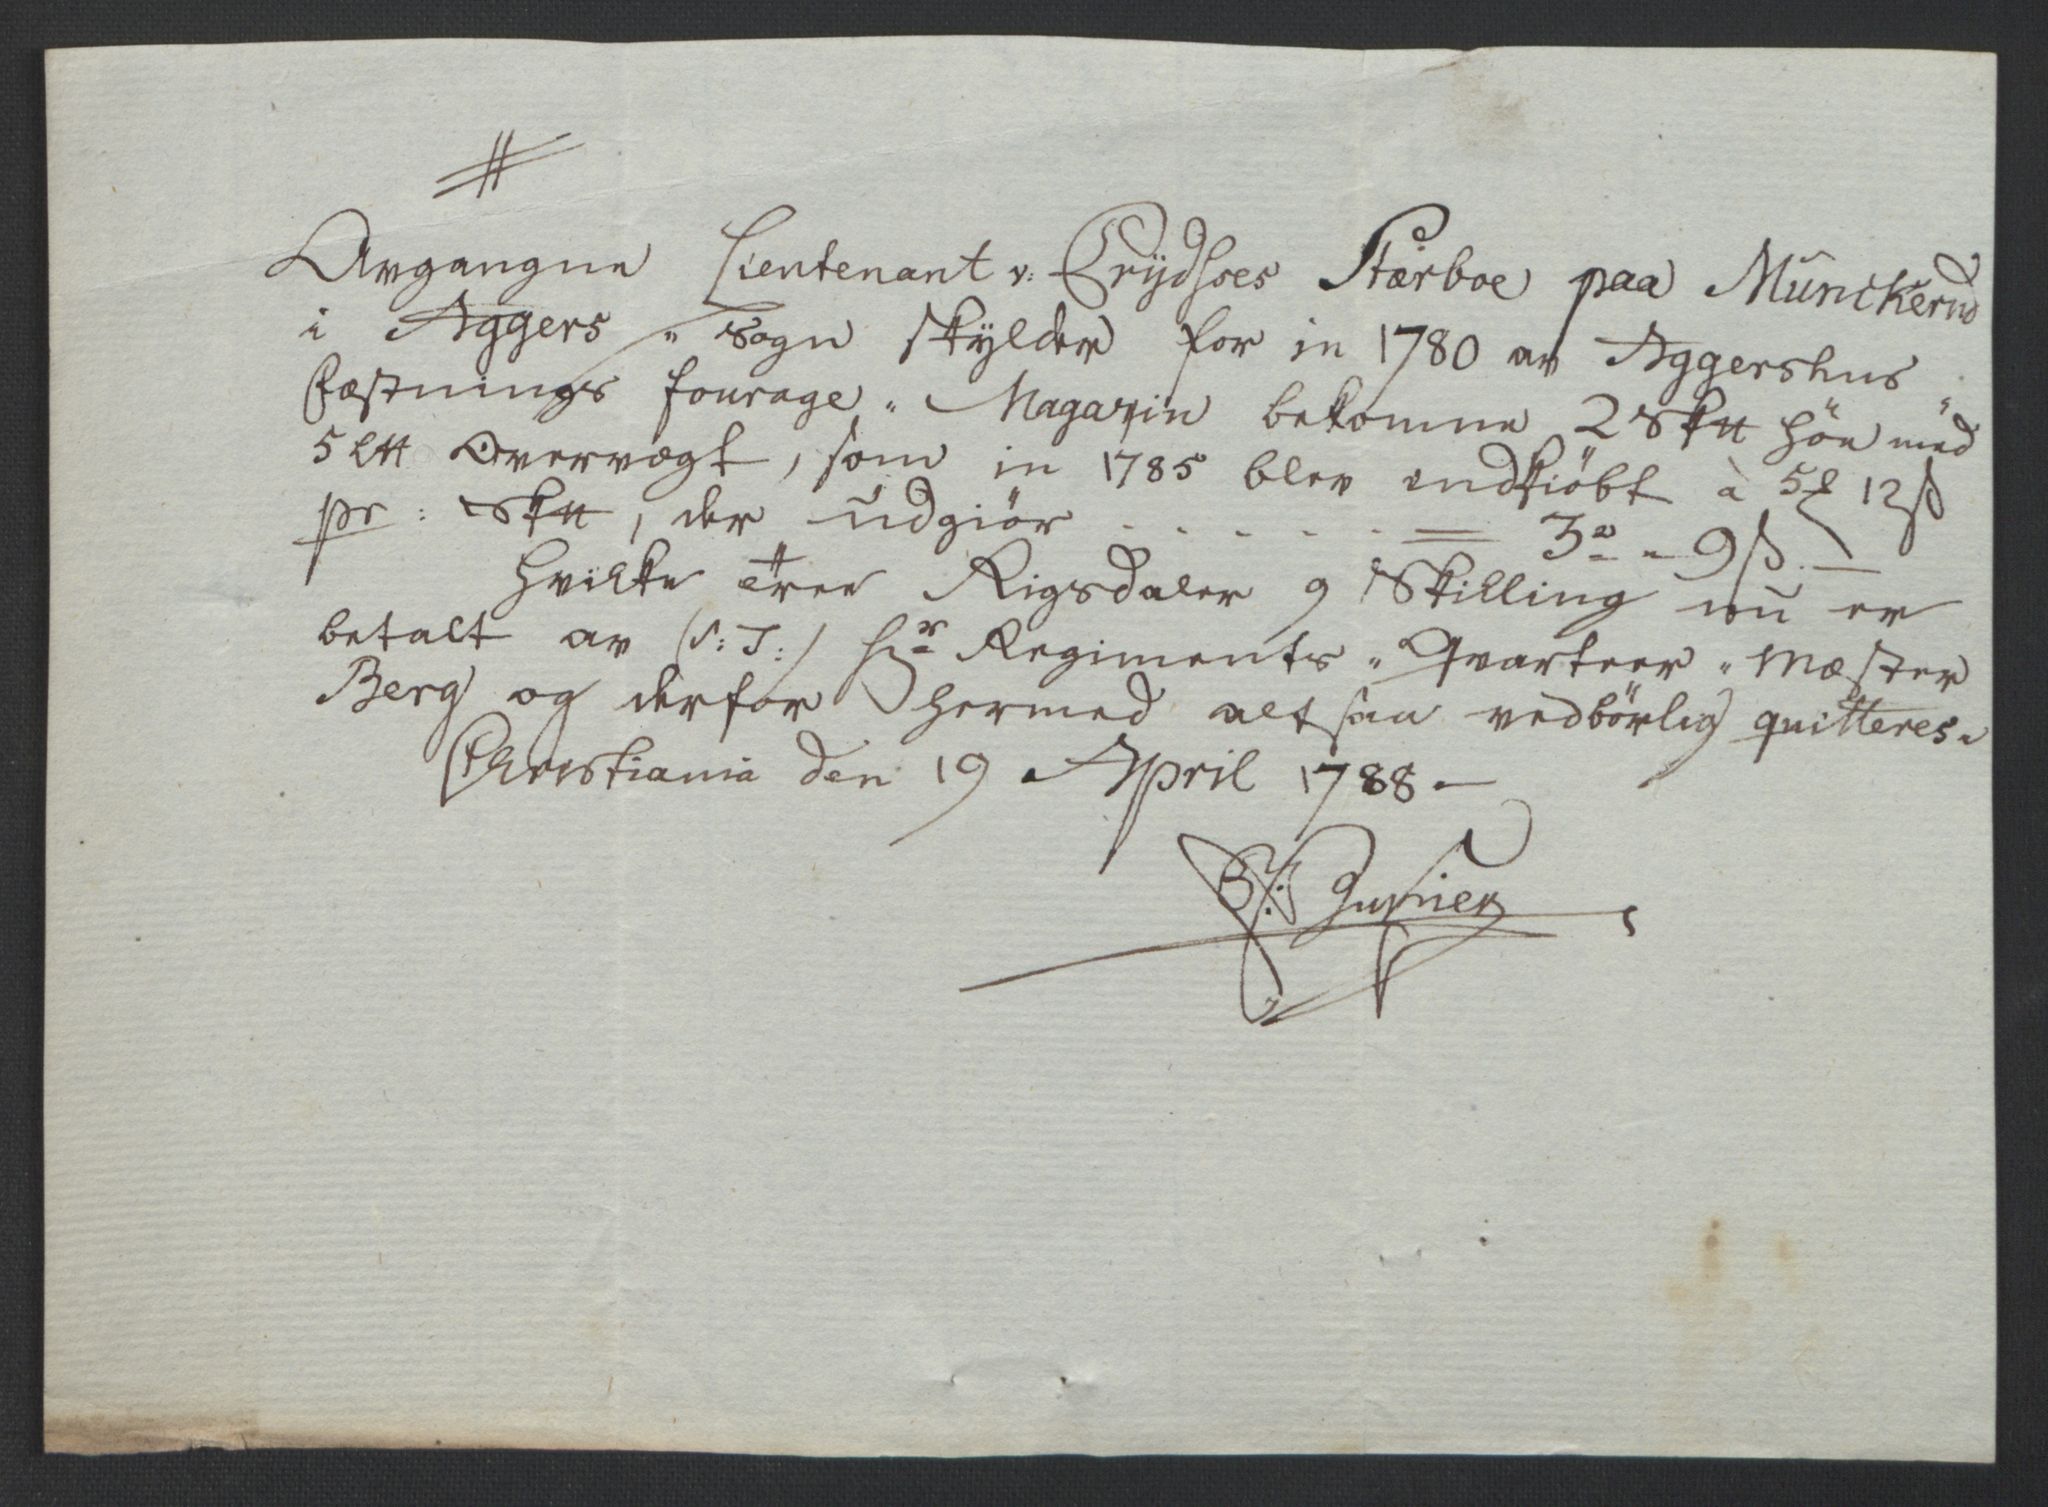 Avgangne Lieutenant v: Crÿdsøes Stærboe paa Münckerud
i Aggers „ Sogn skÿlder for in 1780 av Aggershus „
Fæstnings Fourage „ Magazin bekomne 2 Sk℔ höe med
5 L℔ Overvægt, som in 1785 blev indkiöbt à 5 12ß
pr: Sk℔, der üdgiör . . . . . = 3 „ 9ß. —
Hvilke Tree Rigsdaler 9 Skilling nü er
betalt av (S: T:) Hr Regiments „ Qvarteer „ Mæster
Berg og derfor hermed altsaa vedbörlig quitteres.
Christiania den 19 April 1788 —